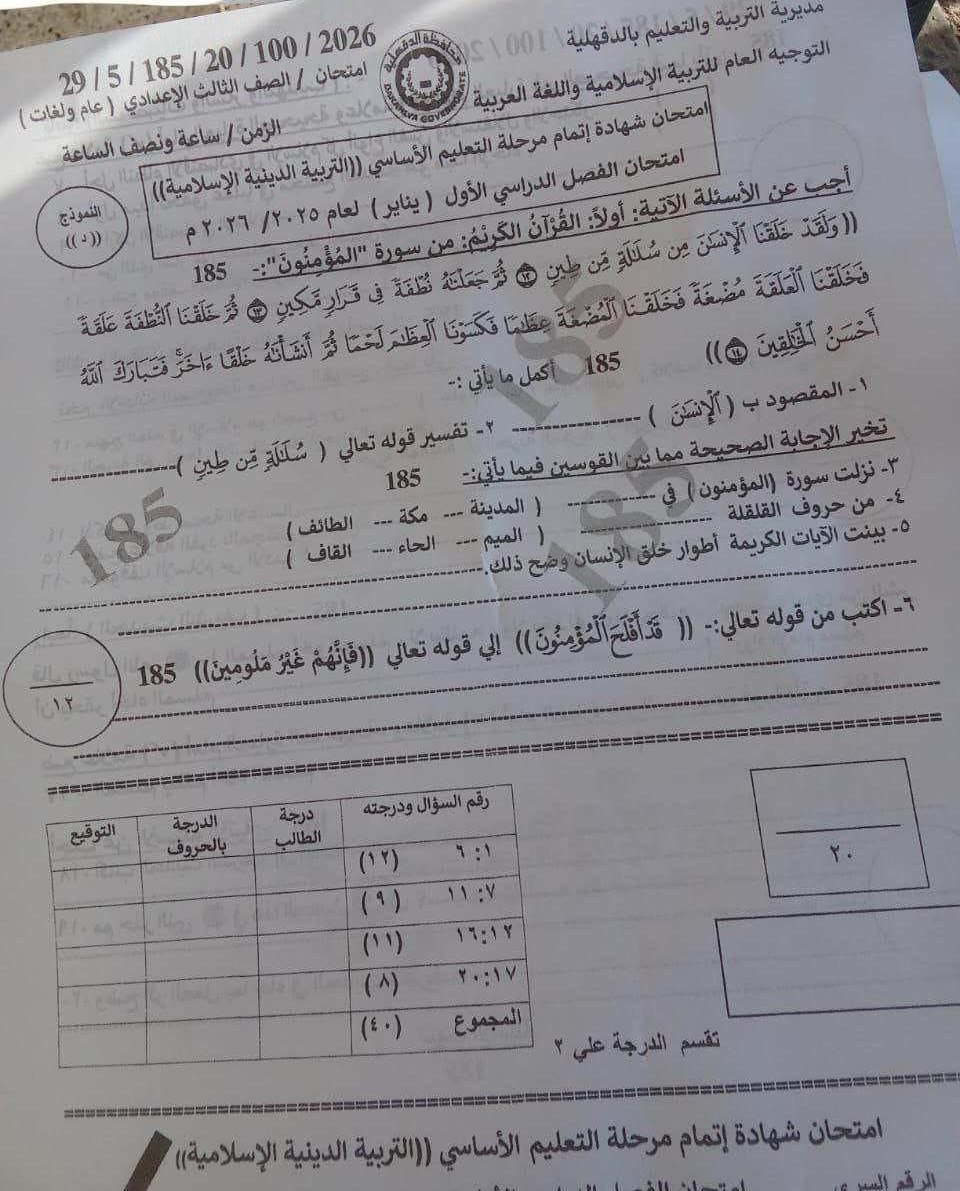 مديرية التربية والتعليم بالدقهلية
التوجيه العام للتربية الإسلامية واللغة العربية
محافظة الدقهلية
DAKAHLYA GOVERNORATE
29 / 5 / 185 / 20 / 100 / 2026
امتحان / الصف الثالث الإعدادي ( عام ولغات )
الزمن / ساعة ونصف الساعة
النموذج
((د))
امتحان شهادة إتمام مرحلة التعليم الأساسي ((التربية الدينية الإسلامية))
امتحان الفصل الدراسي الأول ( يناير ) لعام ٢٠٢٥/ ٢٠٢٦ م
أجب عن الأسئلة الآتية: أولاً: القُرْآنُ الكَرِيْمُ: من سورة "المُؤْمِنُونَ":- 185
(( وَلَقَدْ خَلَقْنَا ٱلْإِنسَٰنَ مِن سُلَٰلَةٍ مِّن طِينٍ ١٢ ثُمَّ جَعَلْنَٰهُ نُطْفَةً فِى قَرَارٍ مَّكِينٍ ١٣ ثُمَّ خَلَقْنَا ٱلنُّطْفَةَ عَلَقَةً
فَخَلَقْنَا ٱلْعَلَقَةَ مُضْغَةً فَخَلَقْنَا ٱلْمُضْغَةَ عِظَٰمًا فَكَسَوْنَا ٱلْعِظَٰمَ لَحْمًا ثُمَّ أَنشَأْنَٰهُ خَلْقًا ءَاخَرَ ۚ فَتَبَارَكَ ٱللَّهُ
أَحْسَنُ ٱلْخَٰلِقِينَ ١٤ )) 185 أكمل ما يأتي :-
١- المقصود ب ( ٱلْإِنسَٰنَ ) ---------------- ٢- تفسير قوله تعالي ( سُلَٰلَةٍ مِّن طِينٍ )----------------
تخير الإجابة الصحيحة مما بين القوسين فيما يأتي:- 185
٣- نزلت سورة (المؤمنون) في ----------- ( المدينة --- مكة --- الطائف )
٤- من حروف القلقلة ---------------- ( الميم --- الحاء --- القاف )
٥- بينت الآيات الكريمة أطوار خلق الإنسان وضح ذلك.
٦- اكتب من قوله تعالي:- (( قَدْ أَفْلَحَ ٱلْمُؤْمِنُونَ)) إلي قوله تعالي ((فَإِنَّهُمْ غَيْرُ مَلُومِينَ)) 185
185
185
185
١٢
رقم السؤال ودرجته درجة الطالب الدرجة بالحروف التوقيع
٦:١ (١٢)
١١:٧ (٩)
١٦:١٢ (١١)
٢٠:١٧ (٨)
المجموع (٤٠)
٢٠
تقسم الدرجة علي ٢
امتحان شهادة إتمام مرحلة التعليم الأساسي ((التربية الدينية الإسلامية))
الرقم السري